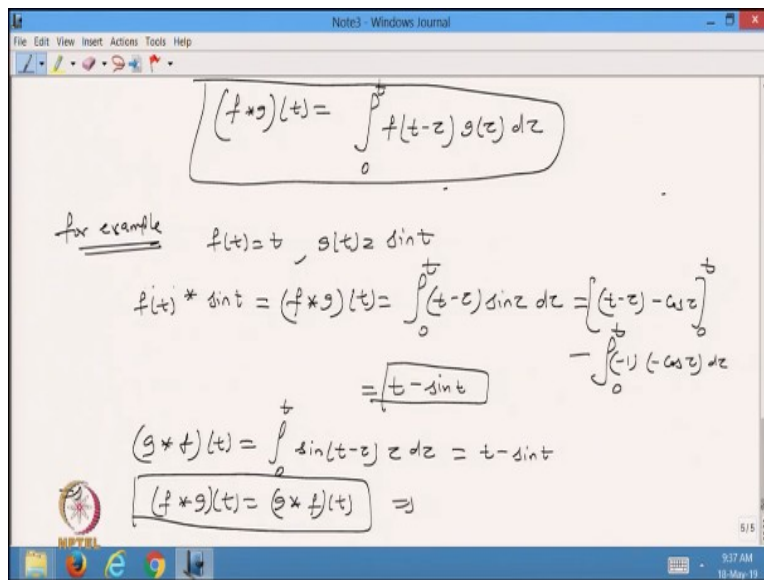 Note3 - Windows Journal
File Edit View Insert Actions Tools Help
(f*g)(t) = ∫₀ᵗ f(t-τ) g(τ) dτ
for example f(t)=t, g(t)= sint
f(t) * sint = (f*g)(t) = ∫₀ᵗ (t-τ) sinτ dτ = [(t-τ) -cosτ]₀ᵗ
- ∫₀ᵗ (-1) (-cosτ) dτ
= t-sint
(g*f)(t) = ∫₀ᵗ sin(t-τ) τ dτ = t-sint
⇒ (f*g)(t) = (g*f)(t) ⇒
NPTEL
5/5
9:37 AM
18-May-19